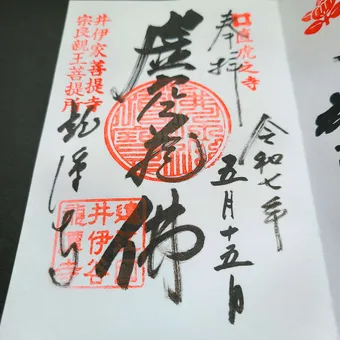 直虎之寺
奉拝
令和七年
五月十五日
虚空蔵佛
井伊家菩提寺
宗良親王菩提所
龍潭寺
井伊谷